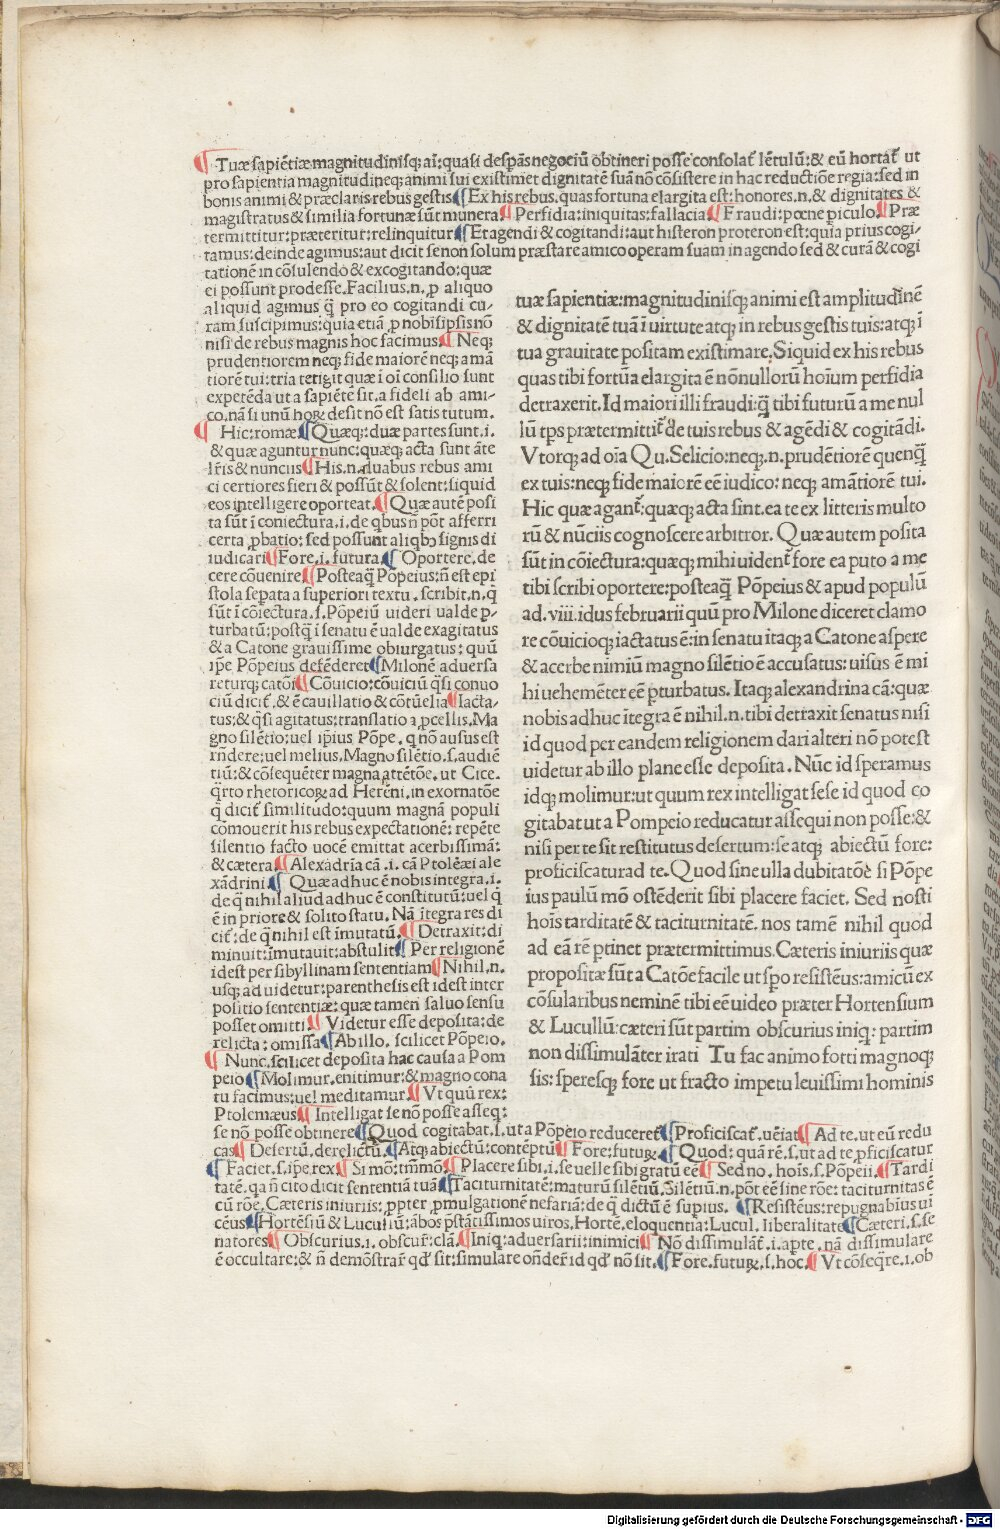 ¶ Tuæ sapiẽtiæ magnitudinisq; ai: quasi despãs negociũ obtineri posse consolat̃ lẽtulũ: & eũ hortat̃ ut
pro sapientia magnitudineq; animi sui existimet dignitatẽ suã nõ cõsistere in hac reductiõe regia: sed in
bonis animi & præclaris rebus gestis ¶ Ex his rebus. quas fortuna elargita est: honores .n. & dignitates &
magistratus & similia fortunæ sũt munera ¶ Perfidia: iniquitas: fallacia ¶ Fraudi: pœne piculo. ¶ Præ
termittitur: præteritur: relinquitur ¶ Et agendi & cogitandi: aut histeron proteron est: quia prius cogi-
tamus: deinde agimus: aut dicit se non solum præstare amico operam suam in agendo sed & curã & cogi
tationẽ in cõsulendo & excogitando: quæ
ei possunt prodesse. Facilius .n. ꝓ aliquo
aliquid agimus q̃ pro eo cogitandi cu-
ram suscipimus: quia etiã ꝓ nobisipsis nõ
nisi de rebus magnis hoc facimus ¶ Neq;
prudentiorem neq; fide maiorẽ neq; amã
tiorẽ tui: tria tetigit quæ ĩ oĩ consilio sunt
expetẽda ut a sapiẽte sit. a fideli ab ami-
co. nã si unũ hoꝝ desit nõ est satis tutum.
¶ Hic: romæ ¶ Quæq;: duæ partes sunt .i.
& quæ aguntur nunc: quæq; acta sunt ãte
lr̃is & nunciis ¶ His .n. duabus rebus ami
ci certiores fieri & possũt & solent: siquid
eos intelligere oporteat. ¶ Quæ autẽ posi
ta sũt ĩ coniectura .i. de qbus ñ põt afferri
certa ꝓbatio: sed possunt aliqbꝰ signis di
iudicari ¶ Fore .i. futura. ¶ Oportere. de
cere cõuenire ¶ Posteaq̃ Põpeius: ñ est epi
stola sepata a superiori textu. scribit .n. q̃
sũt ĩ cõiectura .s. Põpeiũ uideri ualde ꝑ-
turbatũ: postq̃ ĩ senatu ẽ ualde exagitatus
& a Catone grauissime obiurgatus: quũ
ip̃e Põpeius defẽderet ¶ Milonẽ aduersa
returq; catõi ¶ Cõuicio: cõuiciũ q̃si conuo
ciũ dicit̃. & ẽ cauillatio & cõtũelia ¶ Iacta-
tus; & q̃si agitatus: translatio a ꝓcellis. Ma
gno silẽtio: uel ip̃ius Põpe. q nõ ausus est
rñdere: uel melius. Magno silẽtio .s. audiẽ
tiũ: & cõsequẽter magna attẽtõe. ut Cice.
q̃rto rhetoricoꝝ ad Herẽni. in exornatõe
q̃ dicit̃ similitudo: quum magnã populi
cõmouerit his rebus expectationẽ: repẽte
silentio facto uocẽ emittat acerbissimã:
& cætera ¶ Alexãdrĩa cã .i. cã Ptolẽæi ale
xãdrini. ¶ Quæ adhuc ẽ nobis integra .i.
de q̃ nihil aliud adhuc ẽ constitutũ: uel q̃
ẽ in priore & solito statu. Nã ĩtegra res di
cit̃: de q̃ nihil est ĩmutatũ. ¶ Detraxit: di
minuit: ĩmutauit: abstulit ¶ Per religionẽ
idest per sibyllinam sententiam ¶ Nihil .n.
usq; ad uidetur: parenthesis est idest inter
positio sententiæ: quæ tamen saluo sensu
posset omitti ¶ Videtur esse deposita: de
relicta: omissa ¶ Ab illo. scilicet Põpeio.
¶ Nunc. scilicet deposita hac causa a Pom
peio ¶ Molimur. enitimur: & magno cona
tu facimus: uel meditamur ¶ Vt quũ rex:
Ptolemæus ¶ Intelligat se nõ posse asseq:
se nõ posse obtinere ¶ Quod cogitabat .s. ut a Põpeio reduceret̃ ¶ Proficiscat̃. uẽiat ¶ Ad te. ut eũ redu
cas ¶ Desertũ. derelictũ. ¶ Atq; abiectũ: contẽptũ ¶ Fore: futuꝝ. ¶ Quod: quã rẽ .s. ut ad te ꝓficiscatur
¶ Faciet .s. ip̃e rex ¶ Si mõ: tm̃mõ ¶ Placere sibi .i. se uelle sibi gratũ eẽ ¶ Sed no. hoĩs .s. Põpeii. ¶ Tardi
tatẽ. qa ñ cito dicit sententiã tuã ¶ Taciturnitatẽ: maturũ silẽtiũ. Silẽtiũ .n. põt eẽ sine rõe: taciturnitas ẽ
cũ rõe. Cæteris iniuriis: ꝓpter ꝓmulgationẽ nefariã: de q̃ dictũ ẽ supius. ¶ Resistẽus: repugnabĩus ui
cẽus ¶ Hortẽsiũ & Lucullũ: ãbos p̃stãtissimos uiros. Hortẽ. eloquentia: Lucul. liberalitate ¶ Cæteri .s. se
natores ¶ Obscurius .i. obscur̃: clã. ¶ Iniq: aduersarii: inimici ¶ Nõ dissimulãt̃ .i. apte. nã dissimulare
ẽ occultare: & ñ demõstrar̃ qd̓ sit: simulare oñder̃ id qd̓ nõ sit. ¶ Fore. futuꝝ .s. hoc. ¶ Vt cõseq̃re .i. ob
tuæ sapientiæ: magnitudinisq; animi est amplitudinẽ
& dignitatẽ tuã ĩ uirtute atq; in rebus gestis tuis: atq; ĩ
tua grauitate positam existimare. Siquid ex his rebus
quas tibi fortũa elargita ẽ nõnullorũ hoĩum perfidia
detraxerit. Id maiori illi fraudi: q̃ tibi futurũ a me nul
lũ tp̃s prætermittit̃ de tuis rebus & agẽdi & cogitãdi.
Vtorq; ad oĩa Qu. Selicio: neq; .n. prudẽtiorẽ quenq̃
ex tuis: neq; fide maiorẽ eẽ iudico: neq; amãtiorẽ tui.
Hic quæ agant̃: quæq; acta sint. ea te ex litteris multo
rũ & nũciis cognoscere arbitror. Quæ autem posita
sũt in cõiectura: quæq; mihi uident̃ fore ea puto a me
tibi scribi oportere: posteaq̃ Põpeius & apud populũ
ad. viii. idus februarii quũ pro Milone diceret clamo
re cõuicioq; iactatus ẽ: in senatu itaq; a Catone aspere
& acerbe nimiũ magno silẽtio ẽ accusatus: uisus ẽ mi
hi uehemẽter eẽ ꝑturbatus. Itaq; alexandrina cã: quæ
nobis adhuc ĩtegra ẽ nihil .n. tibi detraxit senatus nisi
id quod per eandem religionem dari alteri nõ potest
uidetur ab illo plane esse deposita. Nũc id speramus
idq; molimur: ut quum rex intelligat sese id quod co
gitabat ut a Pompeio reducatur assequi non posse: &
nisi per te sit restitutus desertum: se atq; abiectũ fore:
proficiscatur ad te. Quod sine ulla dubitatõe si Põpe
ius paulũ mõ ostẽderit sibi placere faciet. Sed nosti
hoĩs tarditatẽ & taciturnitatẽ. nos tamẽ nihil quod
ad eã rẽ ꝑtinet prætermittimus. Cæteris iniuriis quæ
propositæ sũt a Catõe facile ut spo resistẽus: amicũ ex
cõsularibus neminẽ tibi eẽ uideo præter Hortensium
& Lucullũ: cæteri sũt partim obscurius iniq: partim
non dissimulãter irati Tu fac animo forti magnoq;
sis: speresq; fore ut fracto impetu leuissimi hominis
Digitalisierung gefördert durch die Deutsche Forschungsgemeinschaft - DFG